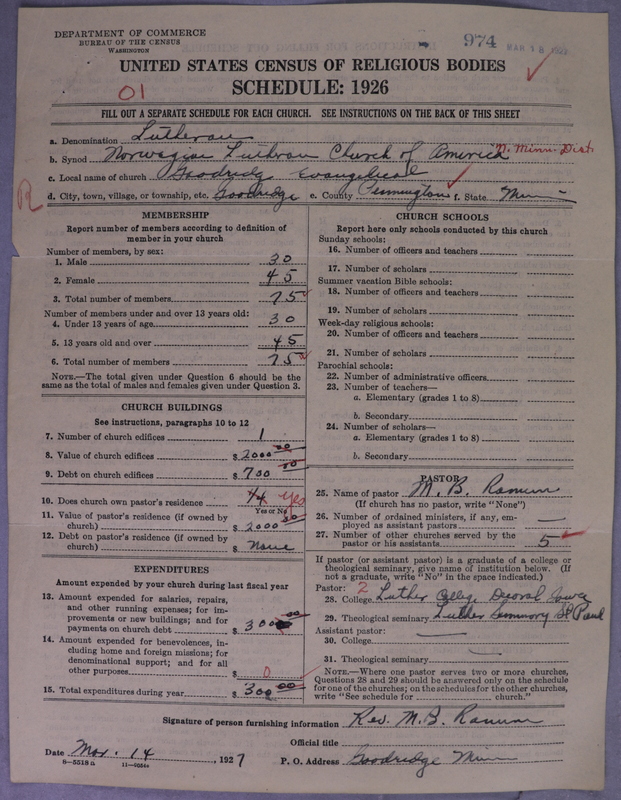 DEPARTMENT OF COMMERCE
BUREAU OF THE CENSUS
WASHINGTON
974
MAR 18 1927
UNITED STATES CENSUS OF RELIGIOUS BODIES
SCHEDULE: 1926
01
FILL OUT A SEPARATE SCHEDULE FOR EACH CHURCH. SEE INSTRUCTIONS ON THE BACK OF THIS SHEET
a. Denomination Lutheran
b. Synod Norwegian Lutheran Church of America N. Minn. Dist.
c. Local name of church Goodridge Evangelical
d. City, town, village, or township, etc. Goodridge e. County Pennington f. State Minn
R
MEMBERSHIP
Report number of members according to definition of member in your church
Number of members, by sex:
1. Male 30
2. Female 45
3. Total number of members 75
Number of members under and over 13 years old:
4. Under 13 years of age 30
5. 13 years old and over 45
6. Total number of members 75
NOTE.—The total given under Question 6 should be
the same as the total of males and females given under Question 3.
CHURCH BUILDINGS
See instructions, paragraphs 10 to 12
7. Number of church edifices 1
8. Value of church edifices $ 2000 00
9. Debt on church edifices $ 700 00
10. Does church own pastor's residence yes
Yes or No
11. Value of pastor's residence (if owned by
church) $ 2000 00
12. Debt on pastor's residence (if owned by
church) $ None
EXPENDITURES
Amount expended by your church during last fiscal year
13. Amount expended for salaries, repairs,
and other running expenses; for im-
provements or new buildings; and for
payments on church debt $ 300 00
14. Amount expended for benevolences, in-
cluding home and foreign missions; for
denominational support; and for all
other purposes $ 0
15. Total expenditures during year $ 300 00
CHURCH SCHOOLS
Report here only schools conducted by this church
Sunday schools:
16. Number of officers and teachers
17. Number of scholars
Summer vacation Bible schools:
18. Number of officers and teachers
19. Number of scholars
Week-day religious schools:
20. Number of officers and teachers
21. Number of scholars
Parochial schools:
22. Number of administrative officers
23. Number of teachers—
a. Elementary (grades 1 to 8)
b. Secondary
24. Number of scholars—
a. Elementary (grades 1 to 8)
b. Secondary
PASTOR
25. Name of pastor M. B.
(If church has no pastor, write "None")
26. Number of ordained ministers, if any, em-
ployed as assistant pastors —
27. Number of other churches served by the
pastor or his assistants 5
If pastor (or assistant pastor) is a graduate of a college or
theological seminary, give name of institution below. (If
not a graduate, write "No" in the space indicated.)
Pastor: 2
28. College Luther College Decorah Iowa
29. Theological seminary Luther Seminary St Paul
Assistant pastor:
30. College —
31. Theological seminary —
NOTE.—Where one pastor serves two or more churches,
Questions 28 and 29 should be answered only on the schedule
for one of the churches; on the schedules for the other churches,
write "See schedule for ........ church."
Signature of person furnishing information Rev. M. B.
Official title
Date Mar. 14, 1927 P. O. Address Goodridge Minn
8—5518 a